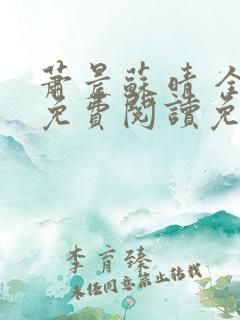 蕭景蘇晴 全
免費閱讀免
李育臻
未經同意禁止轉載